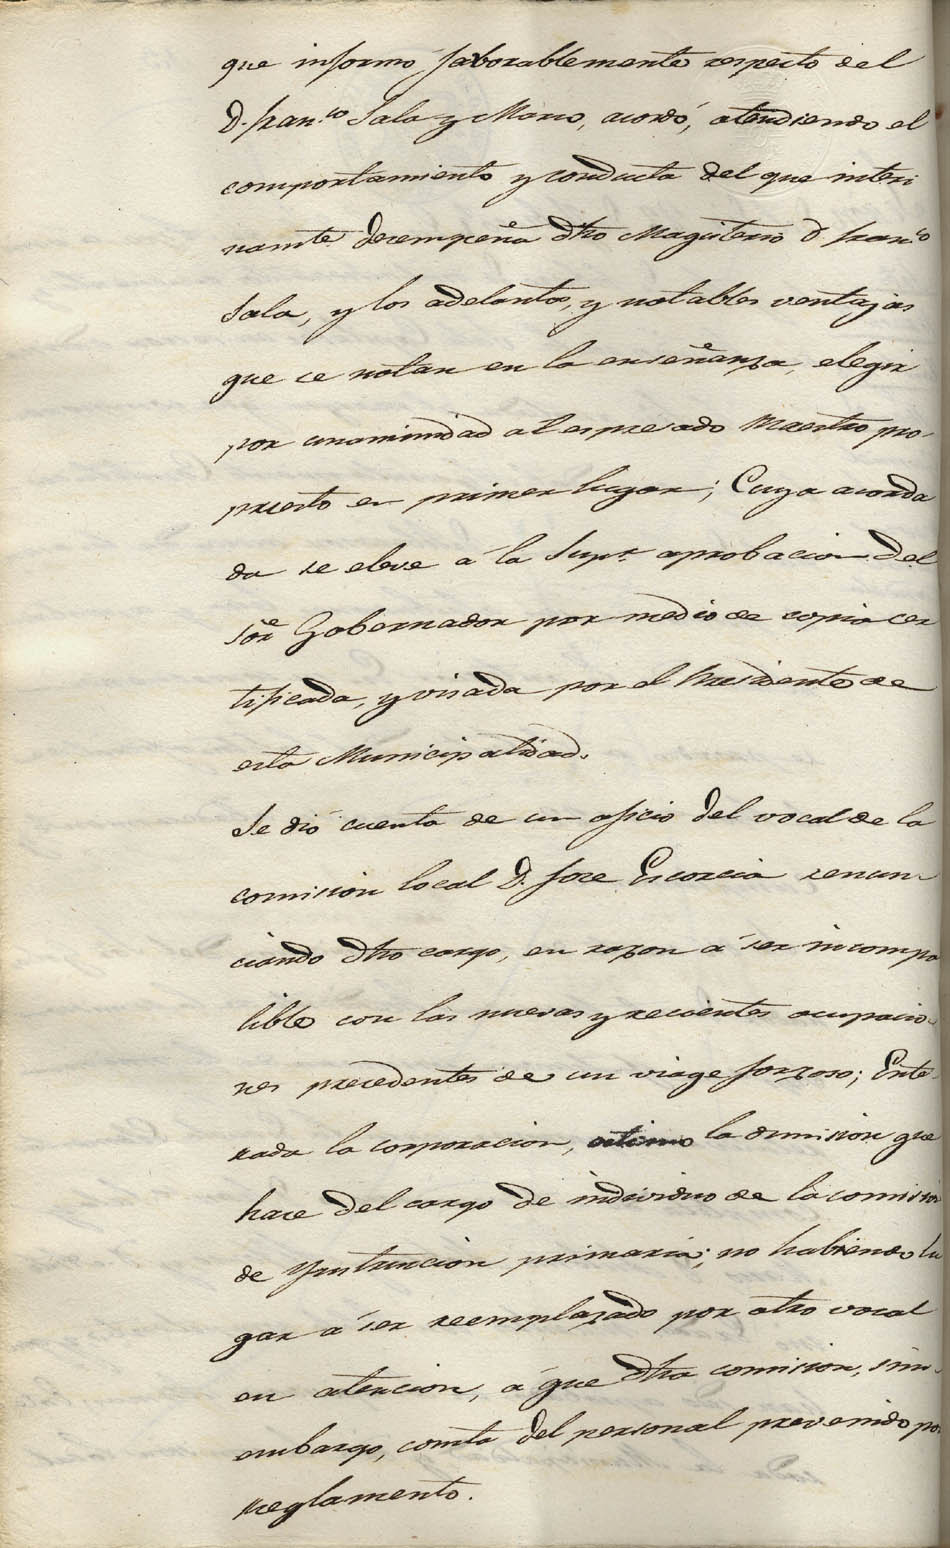 que informó faborablemente respecto del
D. Franco Sala y Marco, acordó, atendiendo el
comportamiento y conducta del que interi
namte desempeña dho Magisterio D Franco
Sala, y los adelantos, y notables ventajas
que se notan en la enseñanza, elegir
por unanimidad al espresado Maestro pro-
puesto en primer lugar; Cuya acorda
da se eleve á la Supr. aprobacion del
Sor Gobernador por medio de copia cer
tificada, y visada por el Presidente de
esta Municipalidad.
Se dió cuenta de un oficio del vocal de la
comision local D. Jose Escorcia renun-
ciando dho cargo, en razon á ser incompa
tible con las nuevas y recientes ocupacio-
nes precedentes de un viage forzoso; Ente-
rada la corporacion, la dimision que
hace del cargo de individuo de la comision
de Ynstruccion primaria; no habiendo lu
gar á ser reemplazado por otro vocal
en atencion, á que dha comision, sin-
embargo, consta del personal prevenido por
Reglamento.